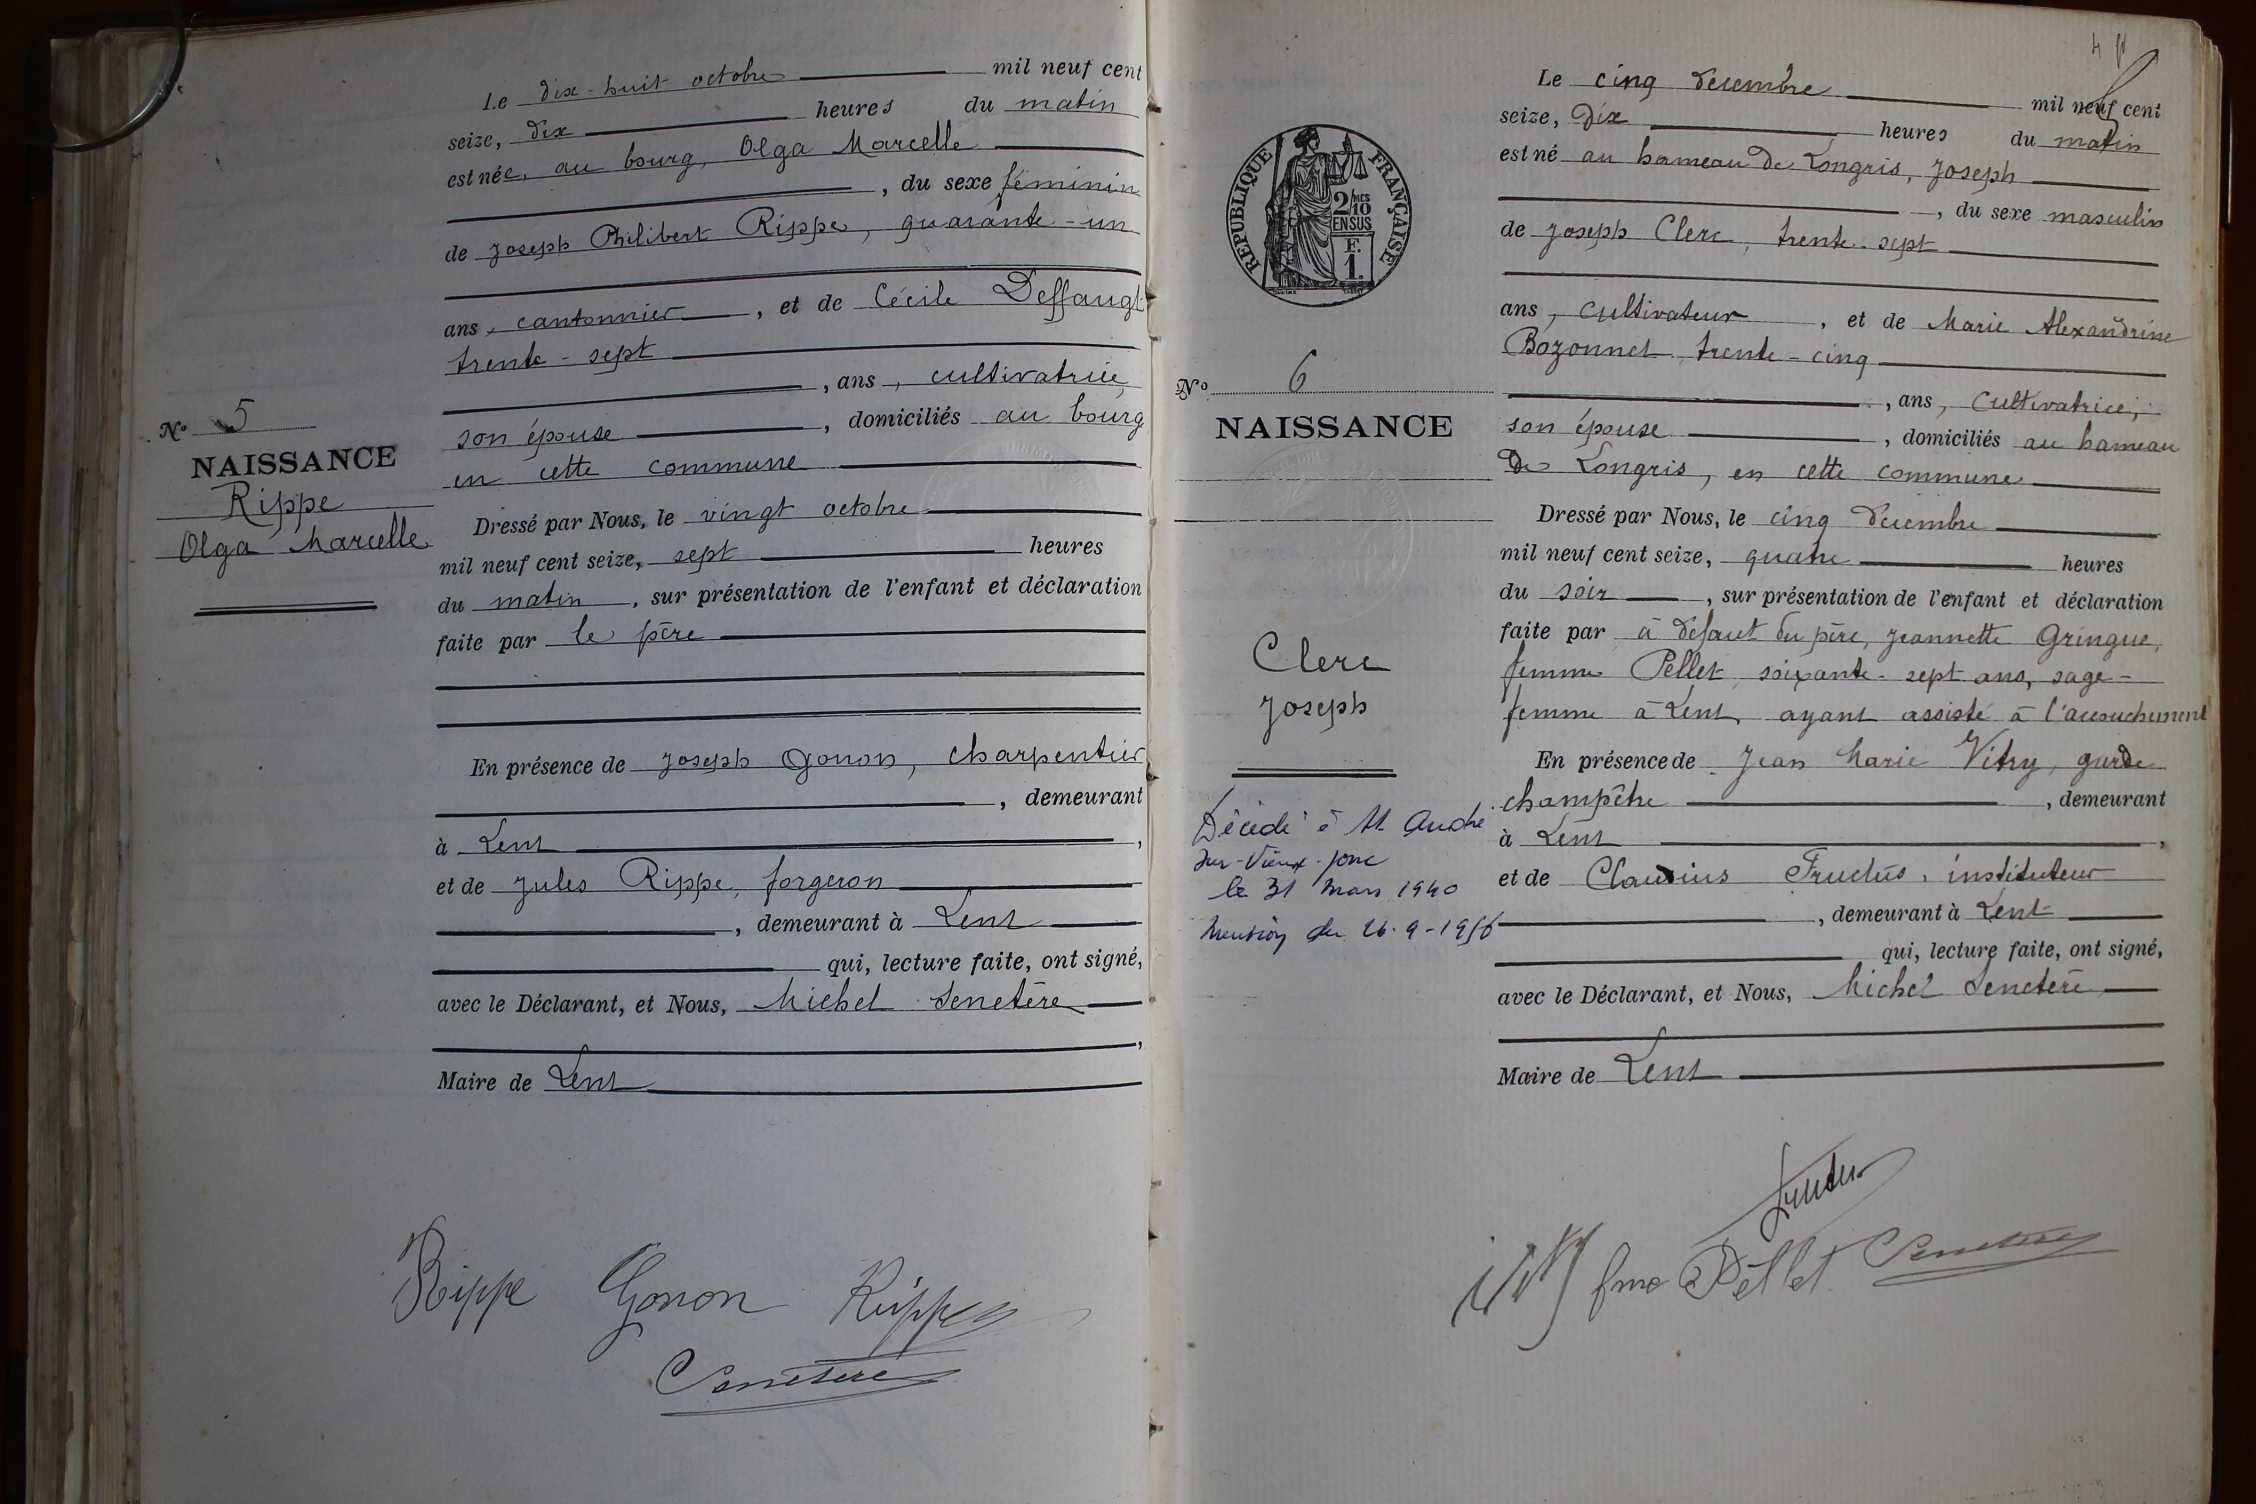 Le dix-huit octobre mil neuf cent
seize, dix heures du matin
est née, au bourg, Olga Marcelle
, du sexe féminin
de Joseph Philibert Rippe, quarante-un
ans, cantonnier, et de Cécile Deffaugt
trente-sept
, ans, cultivatrice,
son épouse, domiciliés au bourg
en cette commune
Dressé par Nous, le vingt octobre
mil neuf cent seize, sept heures
du matin, sur présentation de l'enfant et déclaration
faite par le père
En présence de Joseph Gonon, charpentier
, demeurant
à Lent,
et de Jules Rippe, forgeron
, demeurant à Lent
qui, lecture faite, ont signé,
avec le Déclarant, et Nous, Michel Senetère
,
Maire de Lent
No 5
NAISSANCE
Rippe
Olga Marcelle
Rippe Gonon Rippe
Senetère
Le cinq décembre mil neuf cent
seize, dix heures du matin
est né au hameau de Longris, Joseph
, du sexe masculin
de Joseph Clerc, trente-sept
ans, cultivateur, et de Marie Alexandrine
Bozonnet trente-cinq
, ans, cultivatrice,
son épouse, domiciliés au hameau
de Longris, en cette commune
Dressé par Nous, le cinq décembre
mil neuf cent seize, quatre heures
du soir, sur présentation de l'enfant et déclaration
faite par à défaut du père, Jeannette Gringue,
femme Pellet, soixante-sept ans, sage-
femme à Lent, ayant assisté à l'accouchement
En présence de Jean Marie Vitry, garde
champêtre, demeurant
à Lent,
et de Claudius Fructus, instituteur
, demeurant à Lent
qui, lecture faite, ont signé,
avec le Déclarant, et Nous, Michel Senetère
Maire de Lent
RÉPUBLIQUE FRANÇAISE
2/10 MES
EN SUS
F.
1.
No 6
NAISSANCE
Clerc
Joseph
Décédé à St André
sur-Vieux-Jonc
le 31 mars 1940
Mention du 26-9-1956
Fructus
Vitry fme Pellet Senetère